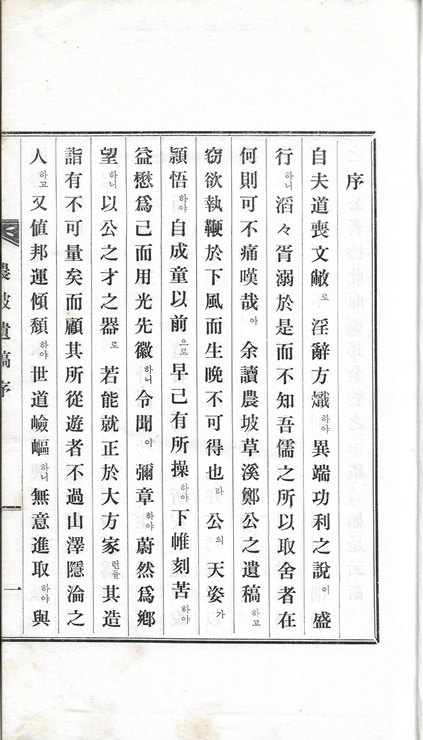 序
自夫道喪文敝로 淫辭方熾하야 異端功利之說이 盛
行하니 滔々胥溺於是而不知吾儒之所以取舍者在
何則可不痛嘆哉아 余讀農坡草溪鄭公之遺稿하고
窃欲執鞭於下風而生晩不可得也라 公의 天姿가
頴悟하야 自成童以前으로 早己有所操하야 下帷刻苦하야
益懋爲己而用光先徽하니 令聞이 彌章하야 蔚然爲鄕
望하니 以公之才之器로 若能就正於大方家런들 其造
詣有不可量矣而顧其所從遊者不過山澤隱淪之
人하고 又値邦運傾頹하야 世道嶮嶇하니 無意進取하야 與
農坡遺稿序
一